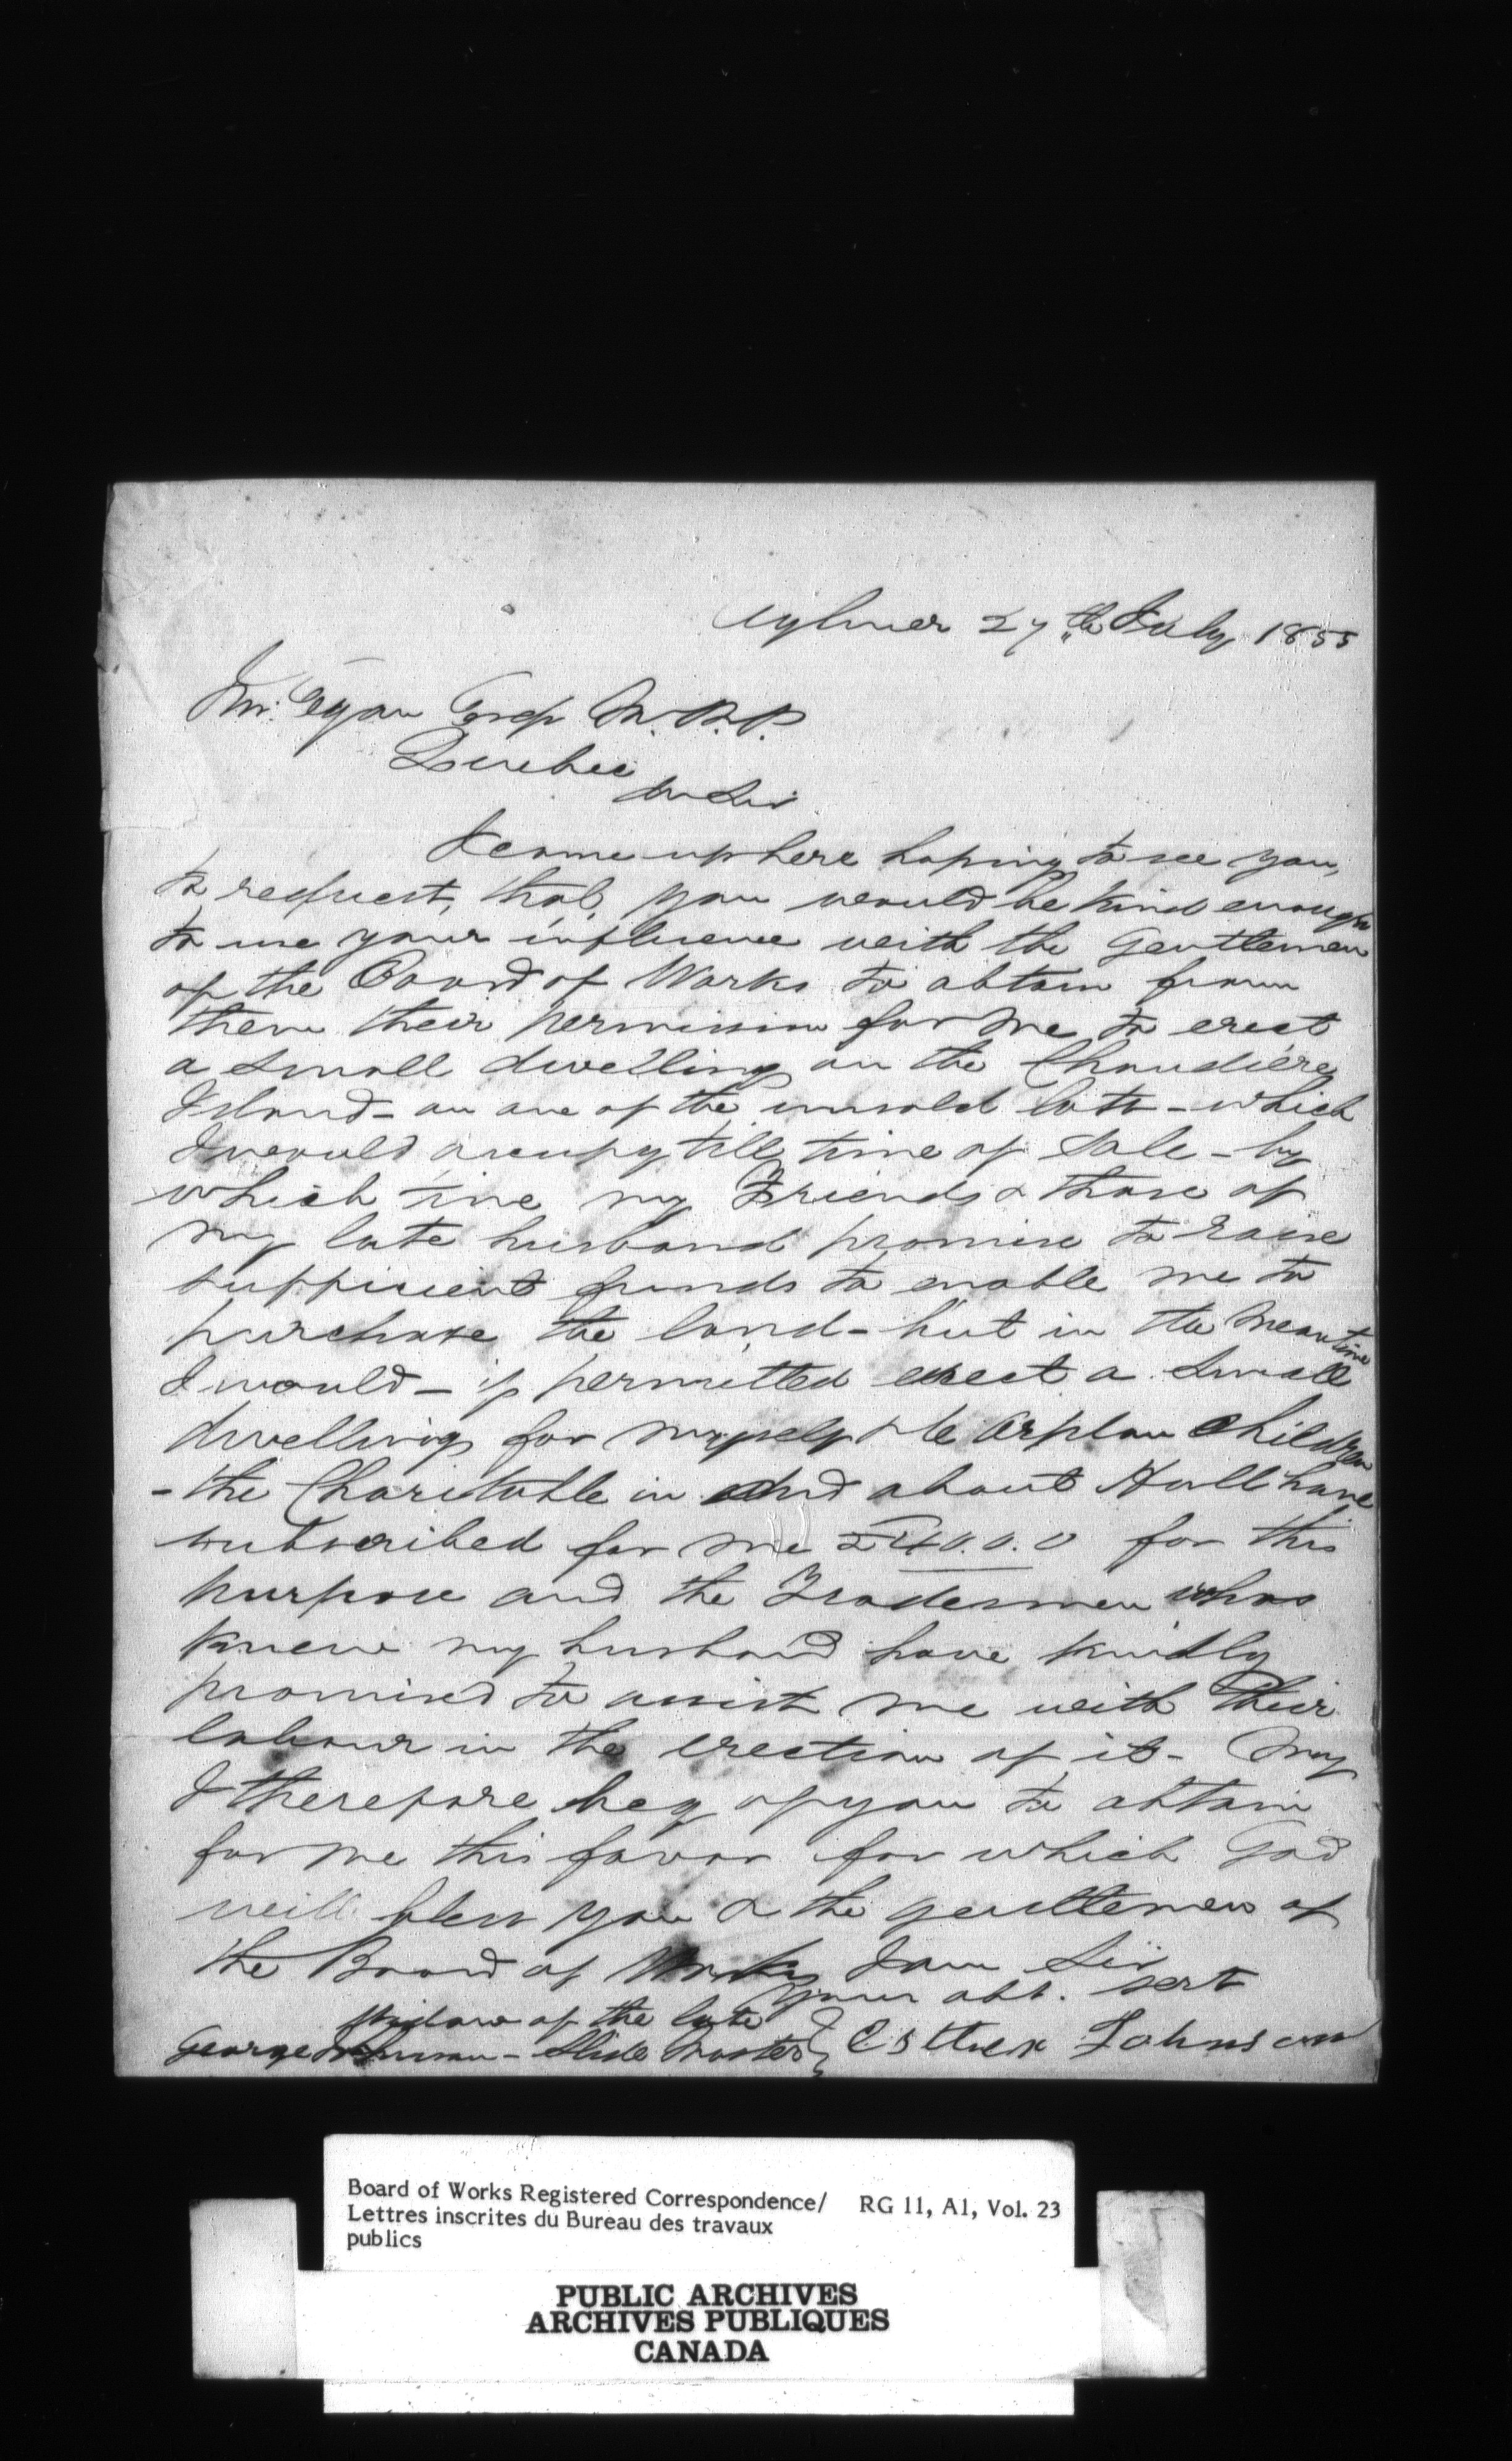 Aylmer 27th July 1855
Jno. Egan Esqr M.P.P.
Quebec
Dr Sir
I came up here hoping to see you,
to request, that, you would be kind enough
to use your influence with the Gentlemen
of the Board of Works to obtain from
them their permission for me to erect
a small dwelling on the Chaudière
Island - on one of the unsold lots - which
I would occupy till time of sale - by
which time my Friends & those of
my late husband promise to raise
sufficient funds to enable me to
purchase the land - but in the meantime
I would - if permitted erect a small
dwelling for myself & orphan children
- the Charitable in and about Hull have
subscribed for me £40.0.0 for this
purpose and the Tradesmen who
knew my husband have kindly
promised to assist me with their
labour in the erection of it - May
I therefore beg of you to obtain
for me this favor for which God
will bless you & the gentlemen of
the Board of Works I am Sir
your obt. sert
Widow of the late
George Johnson - Slide Master } Esther Johnson
Board of Works Registered Correspondence/ RG 11, A1, Vol. 23
Lettres inscrites du Bureau des travaux
publics
PUBLIC ARCHIVES
ARCHIVES PUBLIQUES
CANADA